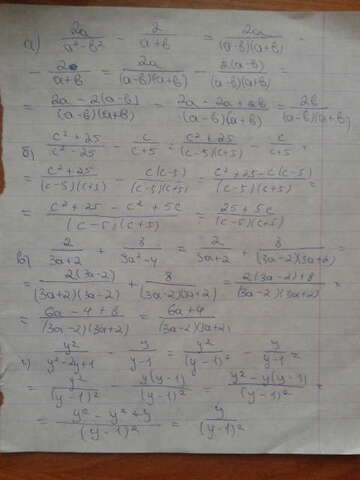 а) 2a/(a²-b²) - 2/(a+b) = 2a/((a-b)(a+b)) -
- 2/(a+b) = 2a/((a-b)(a+b)) - 2(a-b)/((a-b)(a+b)) =
= (2a-2(a-b))/((a-b)(a+b)) = (2a-2a+2b)/((a-b)(a+b)) = 2b/((a-b)(a+b))
б) (c²+25)/(c²-25) - c/(c+5) = (c²+25)/((c-5)(c+5)) - c/(c+5) =
= (c²+25)/((c-5)(c+5)) - c(c-5)/((c-5)(c+5)) = (c²+25-c(c-5))/((c-5)(c+5)) =
= (c²+25-c²+5c)/((c-5)(c+5)) = (25+5c)/((c-5)(c+5))
в) 2/(3a+2) + 8/(9a²-4) = 2/(3a+2) + 8/((3a-2)(3a+2)) =
= 2(3a-2)/((3a+2)(3a-2)) + 8/((3a-2)(3a+2)) = (2(3a-2)+8)/((3a-2)(3a+2)) =
= (6a-4+8)/((3a-2)(3a+2)) = (6a+4)/((3a-2)(3a+2))
г) y²/(y²-2y+1) - y/(y-1) = y²/(y-1)² - y/(y-1) =
= y²/(y-1)² - y(y-1)/(y-1)² = (y²-y(y-1))/(y-1)² =
= (y²-y²+y)/(y-1)² = y/(y-1)²